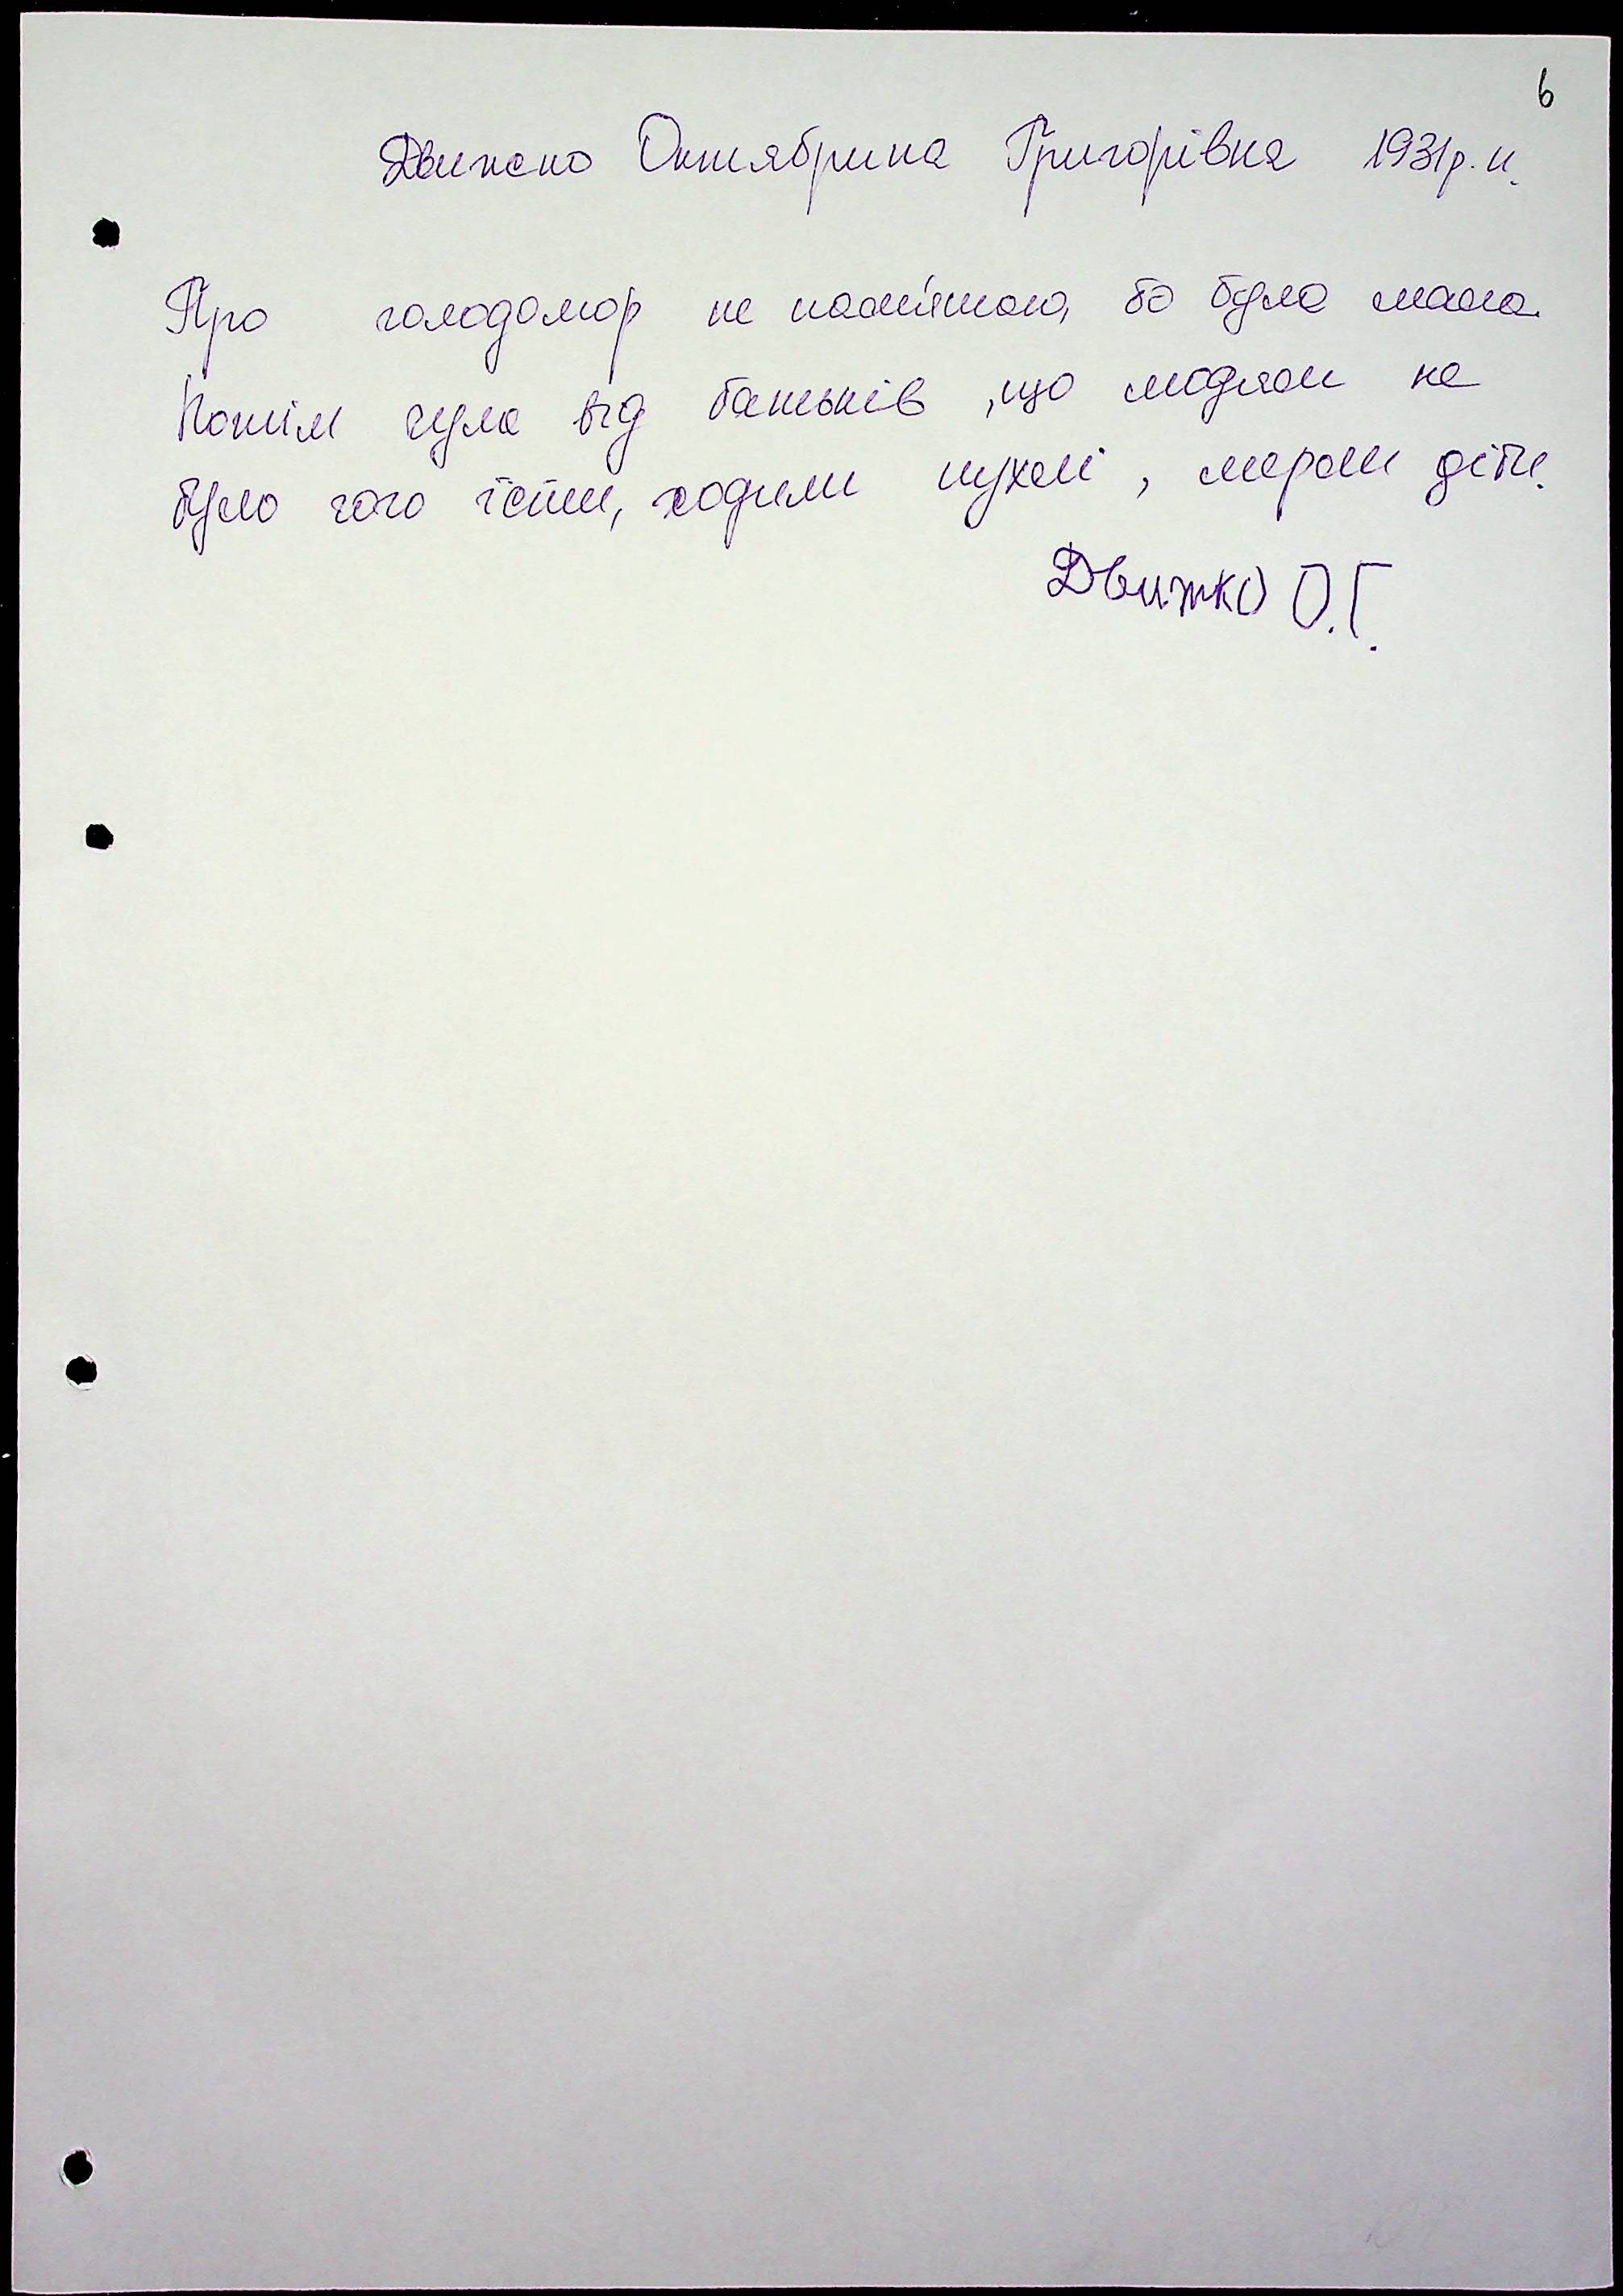 6
Движко Октябрина Григорівна 1931р.н.
Про голодомор не пам'ятаю, бо була мала.
Потім чула від батьків, що людям не
було чого їсти, ходили пухлі, мерли діти.
Движко О.Г.